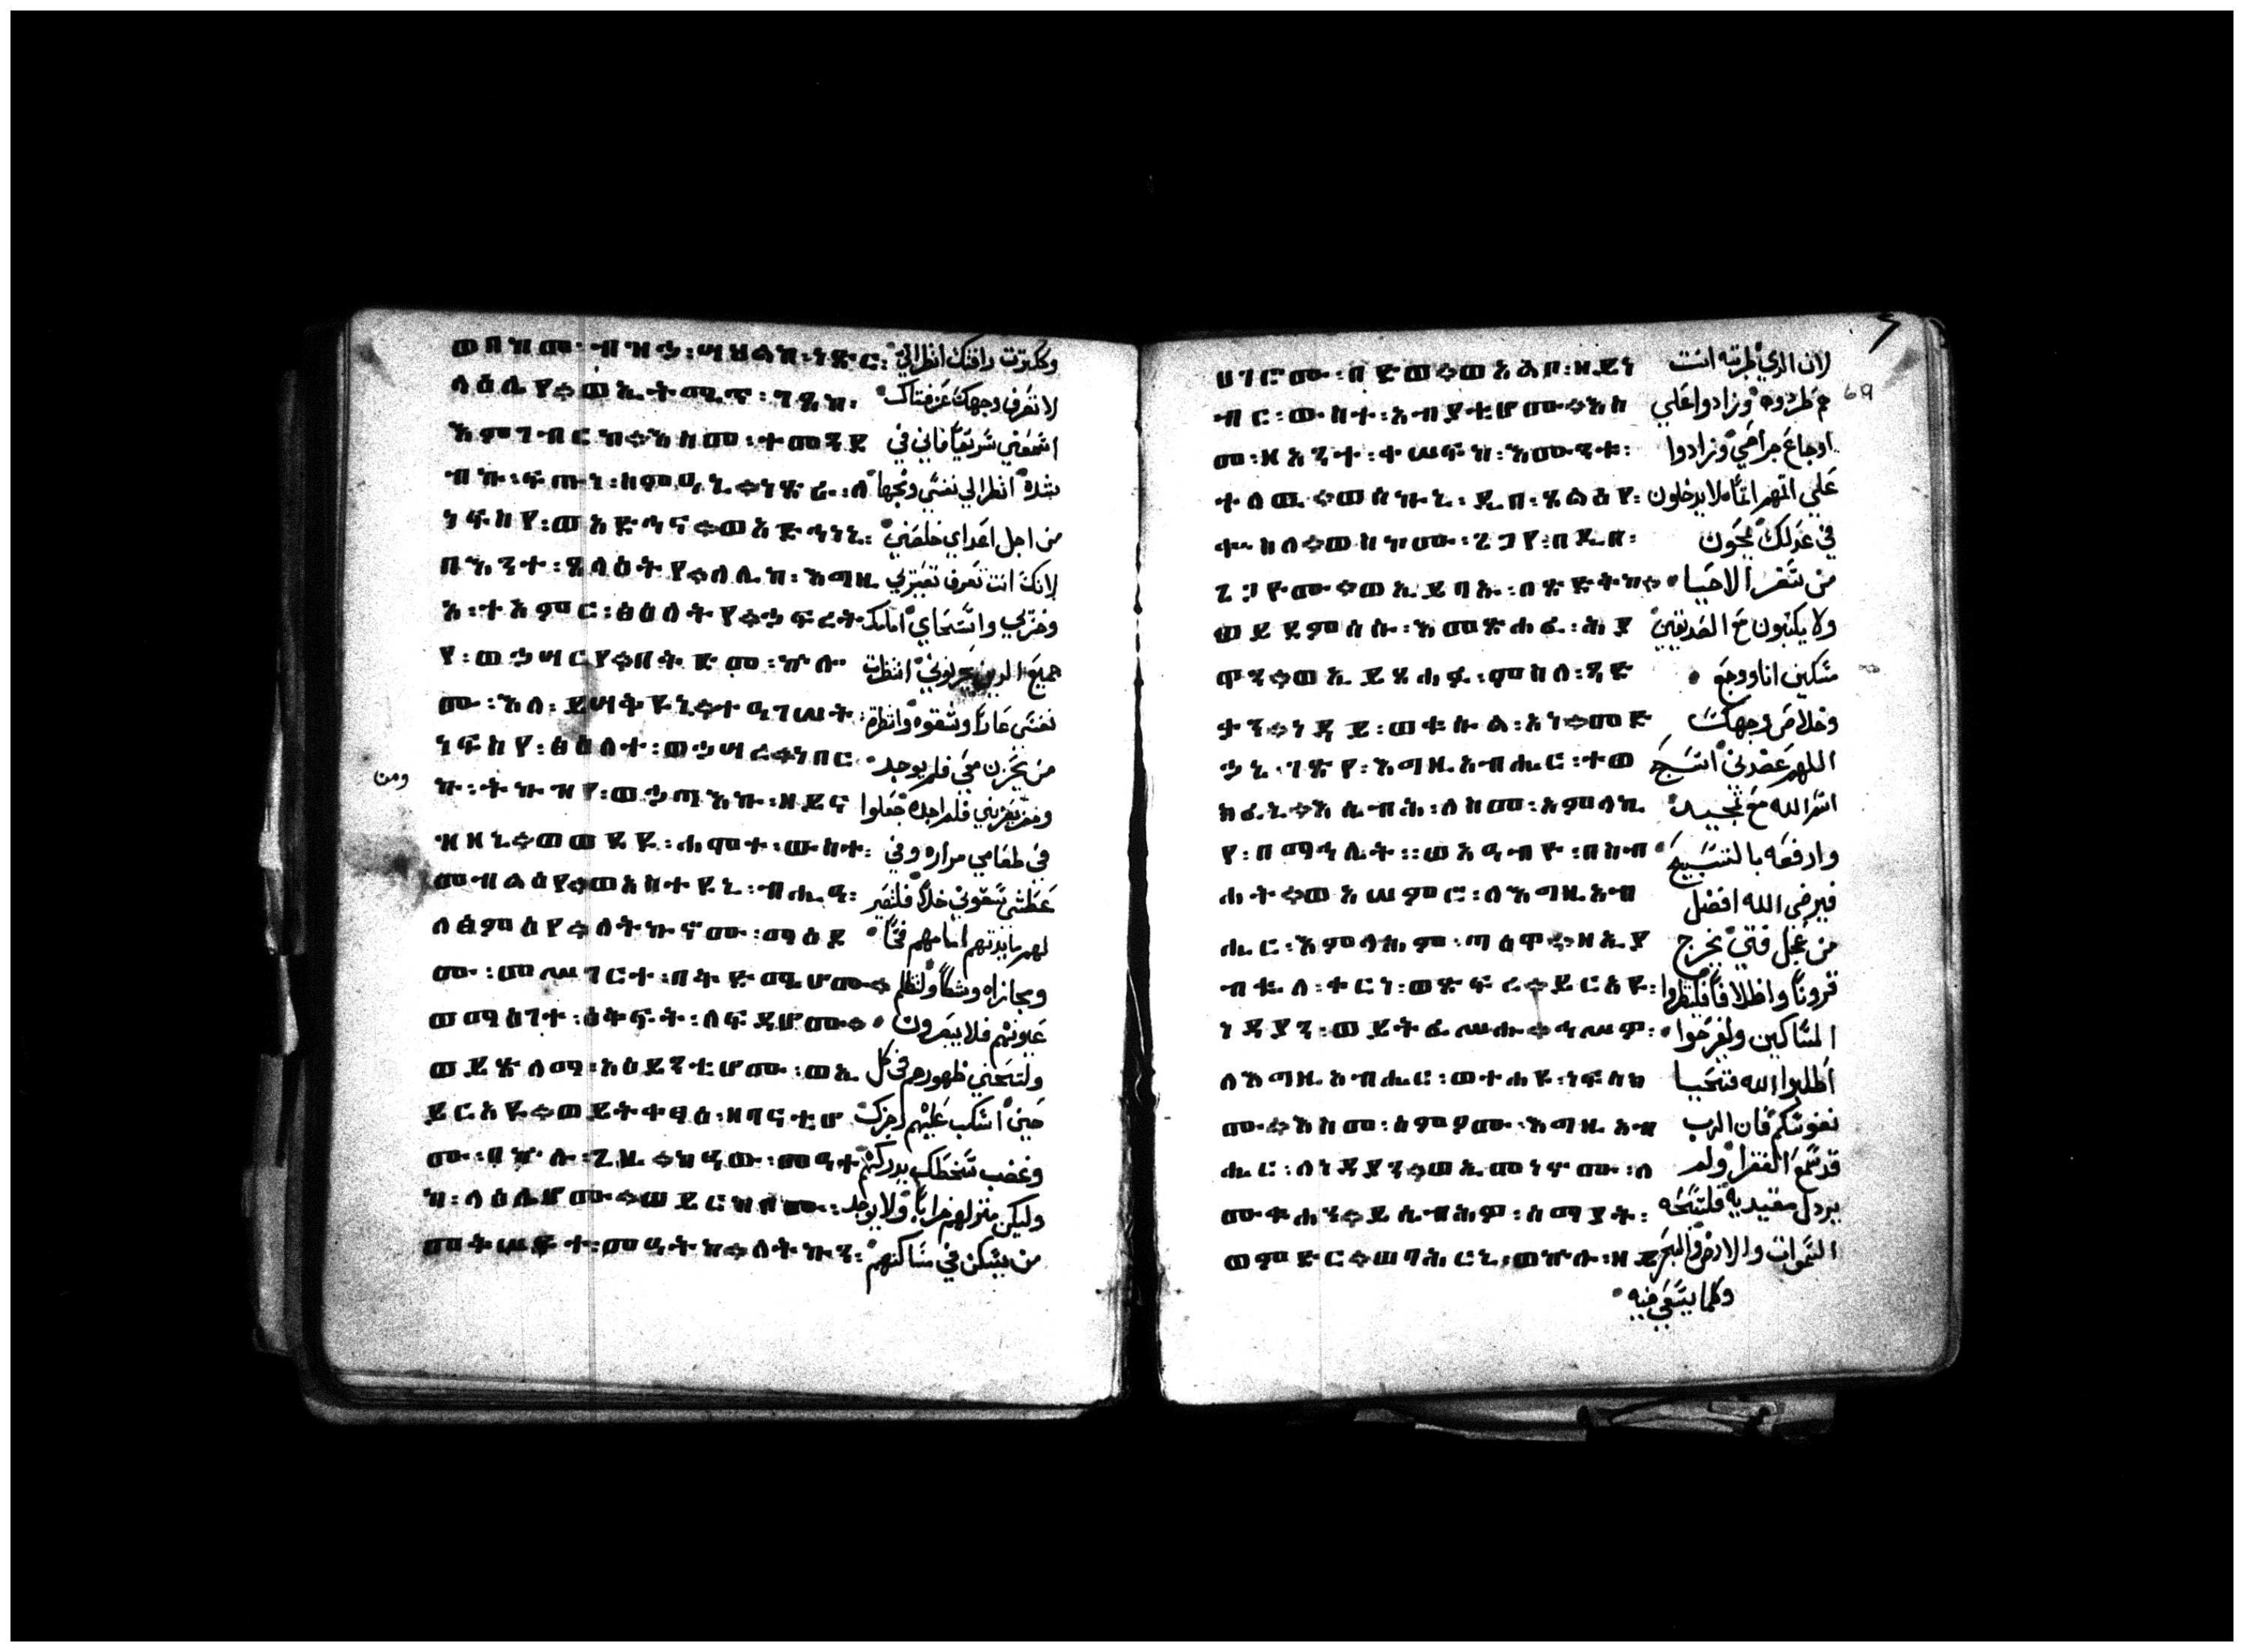 ወበከመ፡ብዝኃ፡ሣህልከ፡ነጽር፡ وككثرت رافتك انظر الي
ላዕሌየ።ወኢትሚጥ፡ገጸከ፡ لا تصرف وجهك عن فتاك
እምገብርከ።እስመ፡ተመንደ استمعني سريعًا فاني في
ብኩ፡ፍጡነ፡ስምዐኒ።ነጽራ፡ለ شده انظر الي نفسي ونجها
ነፍስየ፡ወአድኅና።ወአድኅነኒ፡ من اجل اعداي خلصني
በእንተ፡ጸላዕትየ።ለሊከ፡እግዚ لانك انت تعرف تعييري
አ፡ተአምር፡ፅዕለትየ።ኃፍረት وخزيي واستحاي امامك
የ፡ወኃሣርየ።በቅድመ፡ኵሎ جميع الدين يحزنوني انتظرت
ሙ፡እለ፡ይሣቅዩኒ።ተዐገሠት፡ نفسي عارًا وشقوه وانتظرة
ነፍስየ፡ፅዕለተ፡ወኃሣረ።ነበር من يحزن معي فلم يوجد
ኩ፡ትኩዝየ፡ወኃጣእኩ፡ዘይና ومن يعزيني فلم اجده جعلوا
ዝዘኒ።ወወደዩ፡ሐሞተ፡ውስተ፡ في طعامي مراره وفي
መብልዕየ።ወአስተዩኒ፡ብሒዓ፡ عطشي سقوني خلًا فلتصير
ለፅምዕየ።ለትኩኖሙ፡ማዕደ لهم مايدتهم امامهم فخًا
ሙ፡መሥገርተ፡በቅድሜሆሙ። ومجازاه وشكًا ولتظلم
ወማዕገተ፡ዕቅፍት፡ለፍዳሆሙ። عيونهم فلا يبصرون
ወይጽለማ፡አዕይንቲሆሙ፡ወኢ ولتنحني ظهورهم في كل
ይርአያ።ወይትቀጻዕ፡ዘባናቲሆ حين اسكب عليهم رجزك
ሙ፡በኵሉ፡ጊዜ።ከዓው፡መዓተ وغضب سخطك يدركهم
ከ፡ላዕሌሆሙ።ወይርከቦሙ፡ وليكن منزلهم خرابًا ولا يوجد
መቅሠፍተ፡መዓትከ።ለትኩን፡ من يسكن في مساكنهم
ومن
69
ሀገሮሙ፡በድወ።ወአልቦ፡ዘይነ لان الدي طردته انت
ብር፡ውስተ፡አብያቲሆሙ።እስ هم طردوه وزادوا علي
መ፡ዘአንተ፡ቀሠፍከ፡እሙንቱ፡ اوجاع جراحي وزادوا
ተለዉ።ወሰኩኒ፡ዲበ፡ጸልዕየ፡ علي اتمهم اتمًا ولا يدخلون
ቍስለ።ወስኮሙ፡ጌጋየ፡በዲበ፡ في عدلك يمحون
ጌጋዮሙ።ወኢይባኡ፡በጽድቅከ። من سفر الاحيا
ወይደምሰሱ፡እመጽሐፈ፡ሕያ ولا يكتبون مع الصديقين
ዋን።ወኢይጸሐፉ፡ምስለ፡ጻድ مسكين انا ووجع
ቃን።ነዳይ፡ወቁሱል፡አነ።መድ وخلاص وجهك
ኃኒተ፡ገጽየ፡እግዚአብሔር፡ተወ اللهم عضدني اسبح
ክፈኒ።እሴብሕ፡ለስመ፡አምላኪ اسم الله مع تمجيد
የ፡በማኅሌት።ወአዓብዮ፡በስብ وارفعه بالتسبيح
ሐት።ወአሠምሮ፡ለእግዚአብ فيرضي الله افضل
ሔር፡እምላሕም፡ጣዕዋ።ዘአብ من عجل فتي يخرج
ቈለ፡ቀርነ፡ወጽፍረ።ይርአዩ፡ قرونًا واظلافًا فلينظروا
ነዳያን፡ወይትፈሥሑ።ኅሥዎ፡ المساكين وليفرحوا
ለእግዚአብሔር፡ወተሐዩ፡ነፍስክ اطلبوا الله فتحيا
ሙ።እስመ፡ሰምዖሙ፡እግዚአብ نفوسكم فان الرب
ሔር፡ለነዳያን።ወኢመነኖሙ፡ለ قد سمع الفقرا ولم
ሙቁሐን።ይሴብሕዎ፡ሰማያት፡ يردل مقيديه فلتسبحه
ወምድር።ወባሕርኒ፡ወኵሉ፡ዘይ السموات والارض والبحر
وكلما يسعي فيه